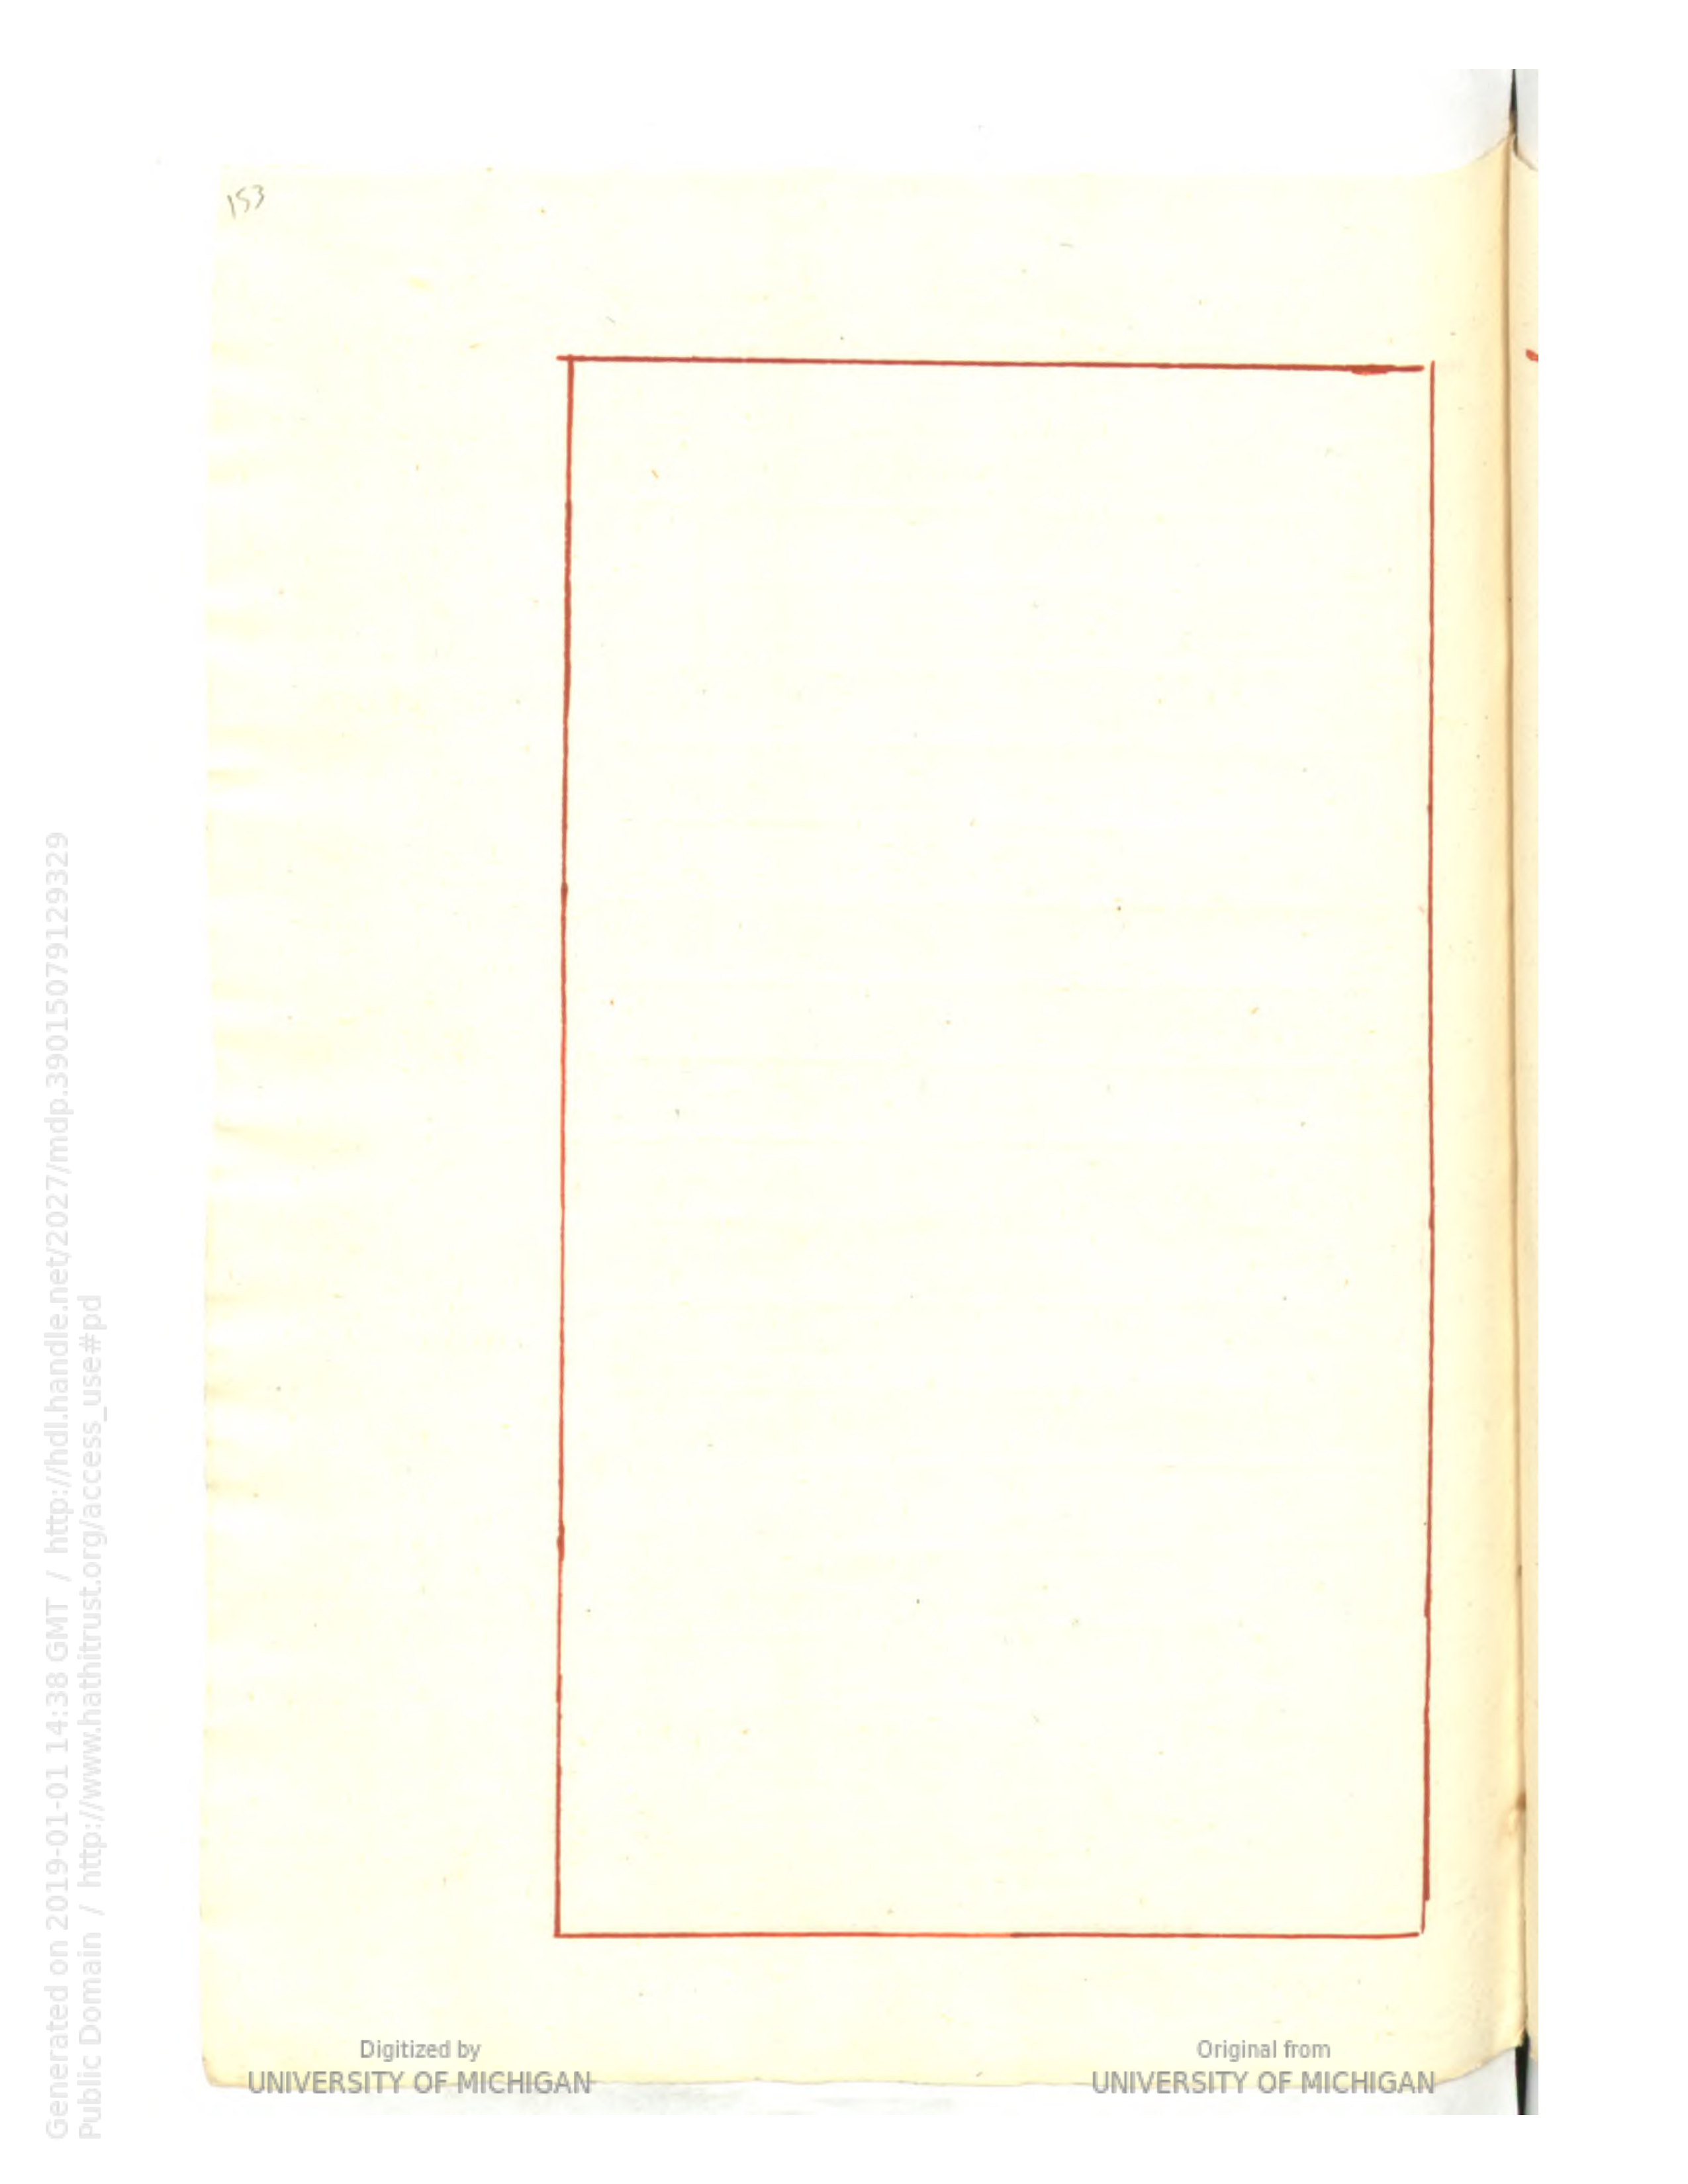 153
Generated on 2019-01-01 14:38 GMT / http://hdl.handle.net/2027/mdp.39015079129329
Public Domain / http://www.hathitrust.org/access_use#pd
Digitized by
UNIVERSITY OF MICHIGAN
Original from
UNIVERSITY OF MICHIGAN